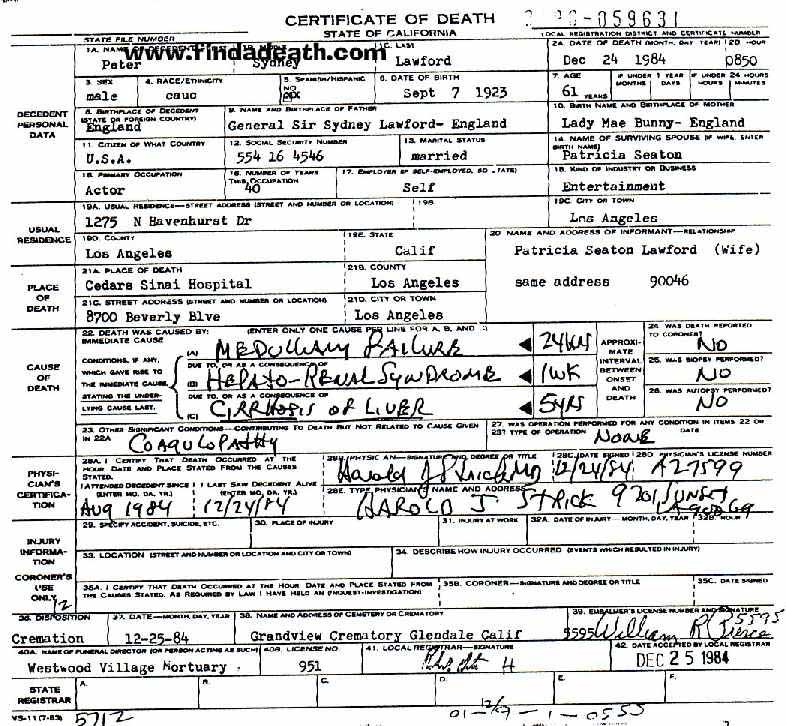 CERTIFICATE OF DEATH
STATE OF CALIFORNIA
059631
STATE FILE NUMBER
LOCAL REGISTRATION DISTRICT AND CERTIFICATE NUMBER
www.findadeath.com
1C. LAST
2A. DATE OF DEATH (MONTH, DAY, YEAR) 2B. HOUR
Peter Sydney Lawford Dec 24 1984 0850
3. SEX 4. RACE/ETHNICITY 5. SPANISH/HISPANIC 6. DATE OF BIRTH 7. AGE IF UNDER 1 YEAR IF UNDER 24 HOURS
MONTHS DAYS HOURS MINUTES
male cauc NO Sept 7 1923 61 YEARS
DECEDENT PERSONAL DATA
8. BIRTHPLACE OF DECEDENT (STATE OR FOREIGN COUNTRY) 9. NAME AND BIRTHPLACE OF FATHER 10. BIRTH NAME AND BIRTHPLACE OF MOTHER
England General Sir Sydney Lawford- England Lady Mae Bunny- England
11. CITIZEN OF WHAT COUNTRY 12. SOCIAL SECURITY NUMBER 13. MARITAL STATUS 14. NAME OF SURVIVING SPOUSE (IF WIFE, ENTER BIRTH NAME)
U.S.A. 554 16 4546 married Patricia Seaton
15. PRIMARY OCCUPATION 16. NUMBER OF YEARS THIS OCCUPATION 17. EMPLOYER (IF SELF-EMPLOYED, SO STATE) 18. KIND OF INDUSTRY OR BUSINESS
Actor 40 Self Entertainment
USUAL RESIDENCE
19A. USUAL RESIDENCE—STREET ADDRESS (STREET AND NUMBER OR LOCATION) 19B. 19C. CITY OR TOWN
1275 N Havenhurst Dr Los Angeles
19D. COUNTY 19E. STATE 20. NAME AND ADDRESS OF INFORMANT—RELATIONSHIP
Los Angeles Calif Patricia Seaton Lawford (Wife)
PLACE OF DEATH
21A. PLACE OF DEATH 21B. COUNTY
Cedars Sinai Hospital Los Angeles same address 90046
21C. STREET ADDRESS (STREET AND NUMBER OR LOCATION) 21D. CITY OR TOWN
8700 Beverly Blve Los Angeles
CAUSE OF DEATH
22. DEATH WAS CAUSED BY: (ENTER ONLY ONE CAUSE PER LINE FOR A, B, AND C)
IMMEDIATE CAUSE
(A) MEDULLARY FAILURE 24 HRS
CONDITIONS, IF ANY, WHICH GAVE RISE TO THE IMMEDIATE CAUSE, STATING THE UNDERLYING CAUSE LAST.
DUE TO, OR AS A CONSEQUENCE OF
(B) HEPATO-RENAL SYNDROME 1 WK
DUE TO, OR AS A CONSEQUENCE OF
(C) CIRRHOSIS OF LIVER 5 YRS
APPROXIMATE INTERVAL BETWEEN ONSET AND DEATH
24. WAS DEATH REPORTED TO CORONER?
NO
25. WAS BIOPSY PERFORMED?
NO
26. WAS AUTOPSY PERFORMED?
NO
23. OTHER SIGNIFICANT CONDITIONS—CONTRIBUTING TO DEATH BUT NOT RELATED TO CAUSE GIVEN IN 22A
COAGULOPATHY
27. WAS OPERATION PERFORMED FOR ANY CONDITION IN ITEMS 22 OR 23? TYPE OF OPERATION DATE
NONE
PHYSICIAN'S CERTIFICATION
28A. I CERTIFY THAT DEATH OCCURRED AT THE HOUR DATE AND PLACE STATED FROM THE CAUSES STATED.
I ATTENDED DECEDENT SINCE I LAST SAW DECEDENT ALIVE
(ENTER MO. DA. YR.) (ENTER MO. DA. YR.)
AUG 1984 12/24/84
28B. PHYSICIAN—SIGNATURE AND DEGREE OR TITLE 28C. DATE SIGNED 28D. PHYSICIAN'S LICENSE NUMBER
Harold J Strick MD 12/24/84 A27599
28E. TYPE PHYSICIAN'S NAME AND ADDRESS
HAROLD J. STRICK 9201 SUNSET
INJURY INFORMATION
29. SPECIFY ACCIDENT, SUICIDE, ETC. 30. PLACE OF INJURY 31. INJURY AT WORK 32A. DATE OF INJURY—MONTH, DAY, YEAR 32B. HOUR
33. LOCATION (STREET AND NUMBER OR LOCATION AND CITY OR TOWN) 34. DESCRIBE HOW INJURY OCCURRED (EVENTS WHICH RESULTED IN INJURY)
CORONER'S USE ONLY
35A. I CERTIFY THAT DEATH OCCURRED AT THE HOUR DATE AND PLACE STATED FROM THE CAUSES STATED. AS REQUIRED BY LAW I HAVE HELD AN (INQUEST-INVESTIGATION)
35B. CORONER—SIGNATURE AND DEGREE OR TITLE 35C. DATE SIGNED
36. DISPOSITION 37. DATE—MONTH, DAY, YEAR 38. NAME AND ADDRESS OF CEMETERY OR CREMATORY 39. EMBALMER'S LICENSE NUMBER AND SIGNATURE
Cremation 12-25-84 Grandview Crematory Glendale Calif 5595 William R Pierce 5595
40A. NAME OF FUNERAL DIRECTOR (OR PERSON ACTING AS SUCH) 40B. LICENSE NO. 41. LOCAL REGISTRAR—SIGNATURE 42. DATE ACCEPTED BY LOCAL REGISTRAR
Westwood Village Mortuary 951 DEC 25 1984
STATE REGISTRAR
A. B. C. D. E. F.
VS-11 (7-83) 5712